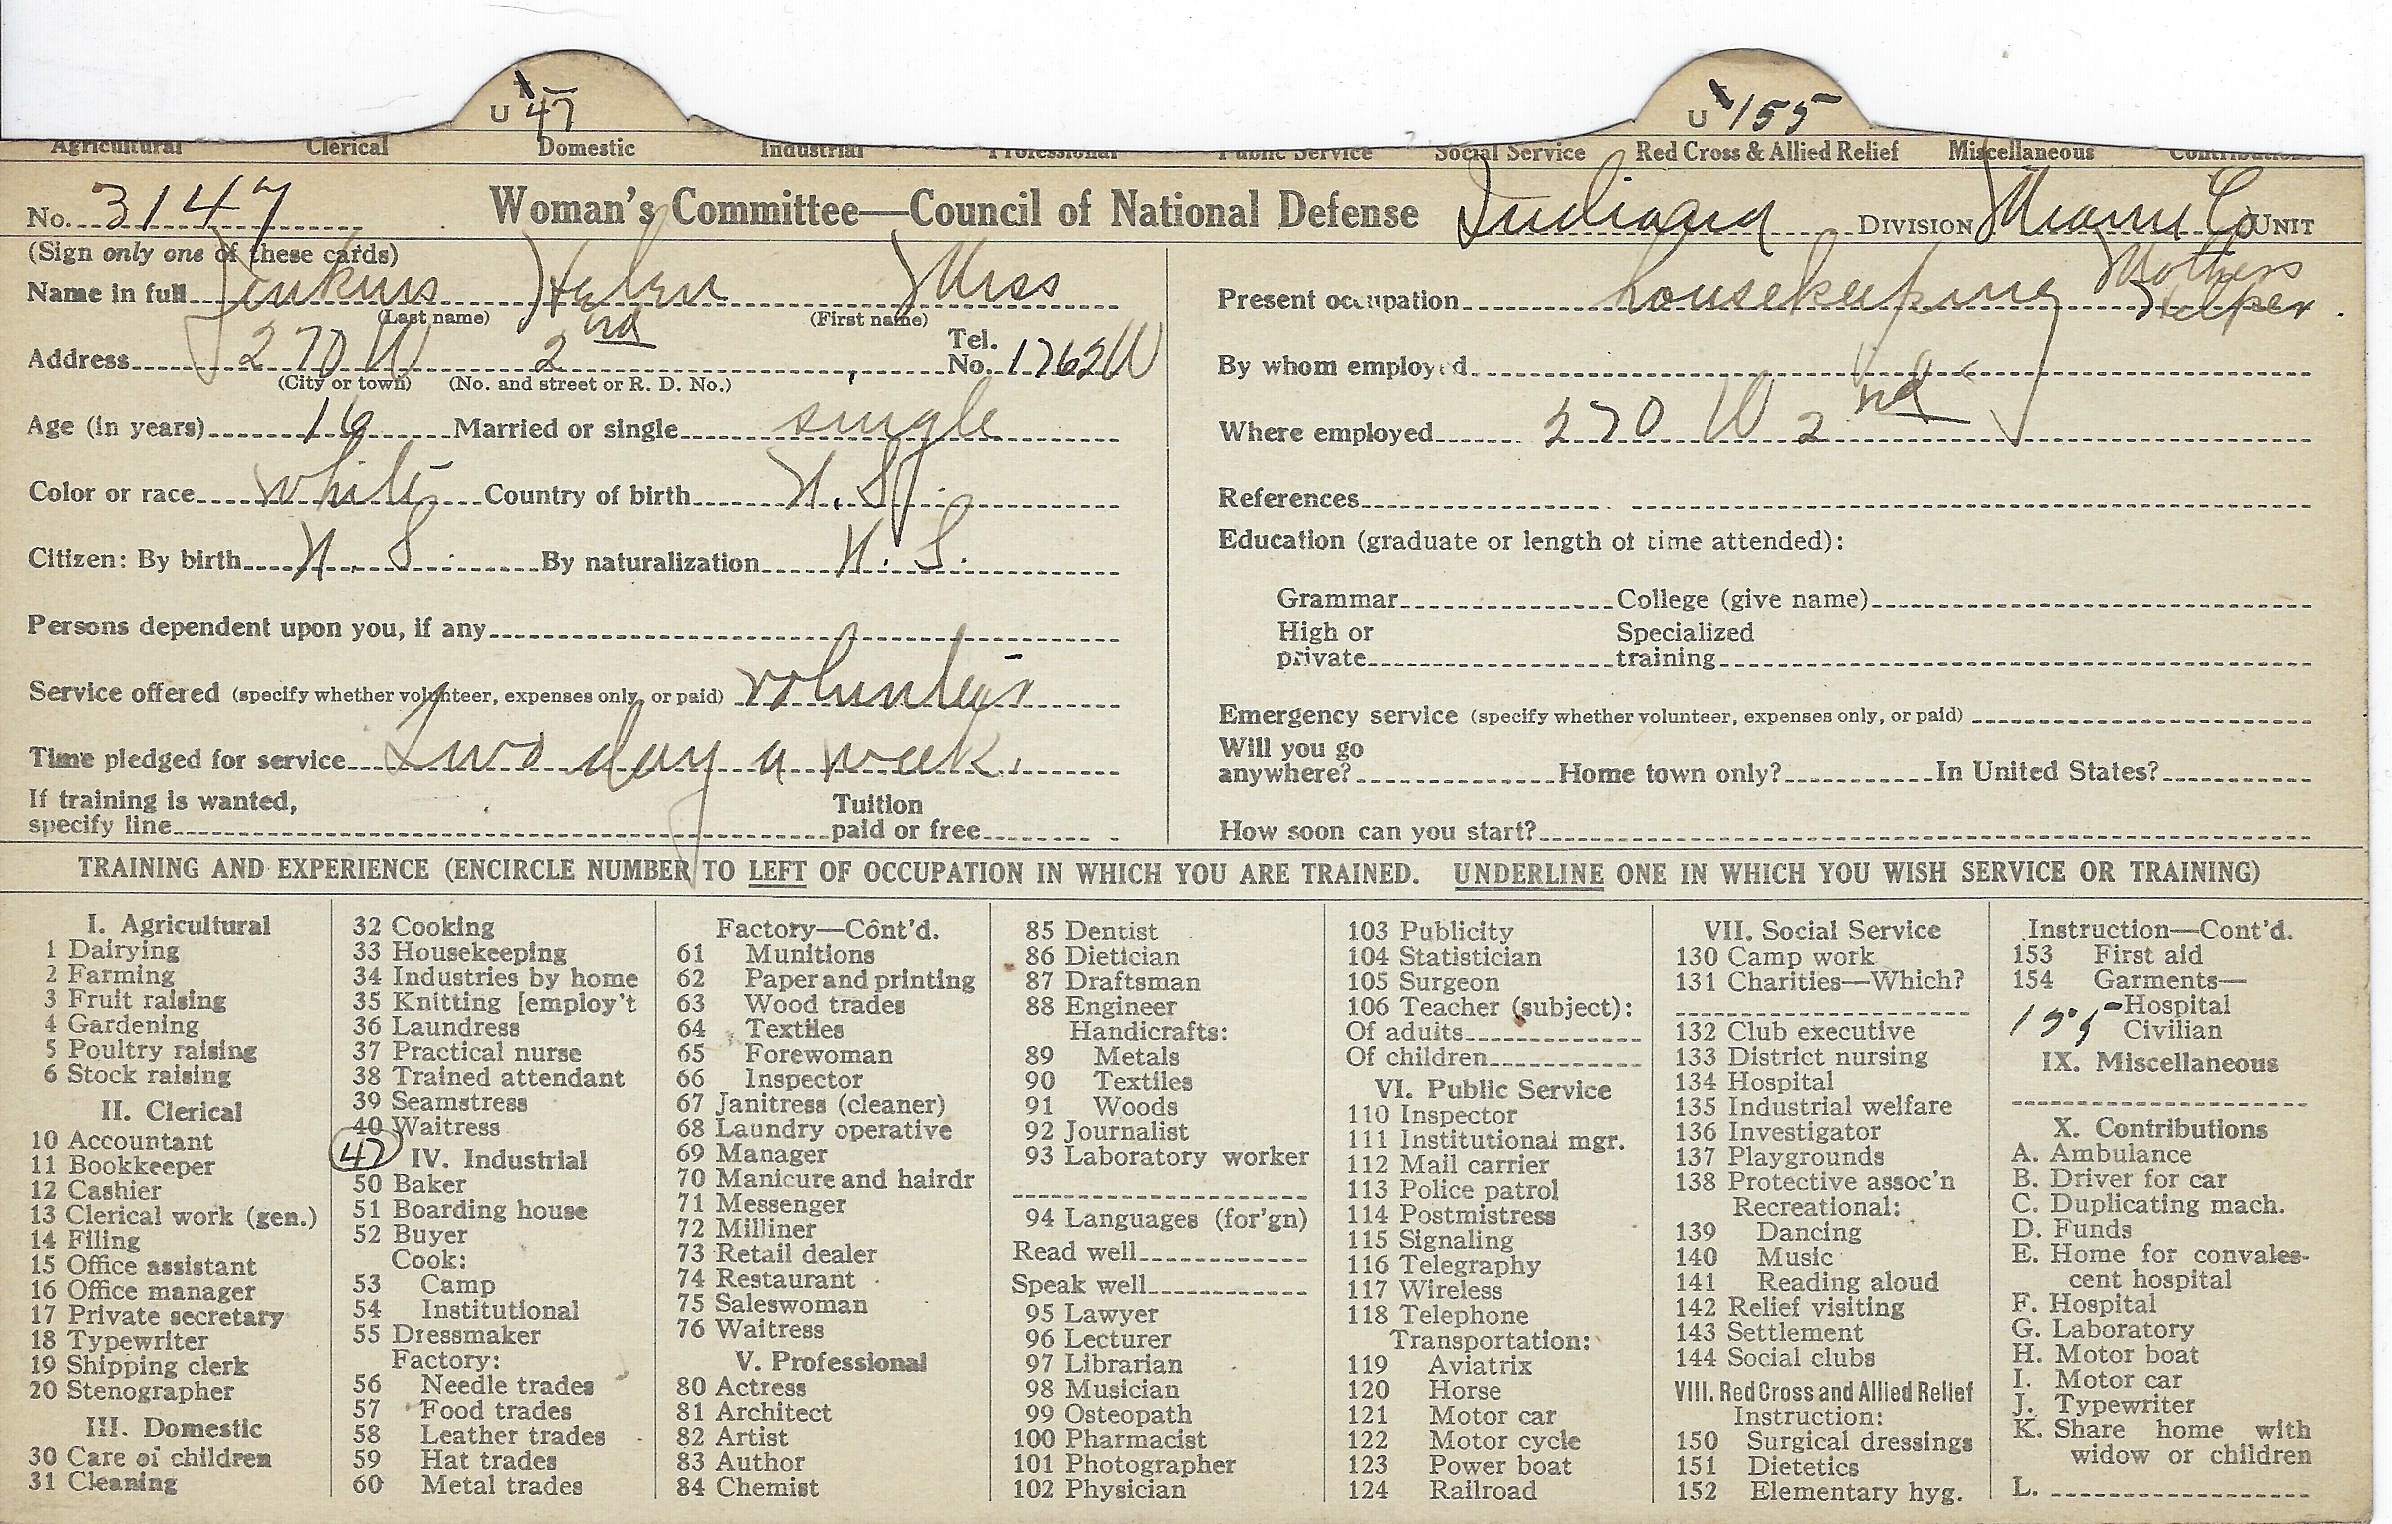 U 47
U 155
Agricultural Clerical Domestic Industrial Professional Public Service Social Service Red Cross & Allied Relief Miscellaneous Contributions
No. 3147 Woman's Committee—Council of National Defense Indiana DIVISION Miami Co UNIT
(Sign only one of these cards)
Name in full Jenkins Helen Miss
(Last name) (First name)
Address 270 W 2nd Tel. No. 1762W
(City or town) (No. and street or R. D. No.)
Age (in years) 16 Married or single single
Color or race white Country of birth U.S.
Citizen: By birth U.S. By naturalization U.S.
Persons dependent upon you, if any
Service offered (specify whether volunteer, expenses only, or paid) volunteer
Time pledged for service Two day a week.
If training is wanted,
specify line Tuition paid or free
Present occupation housekeeping Mothers Helper.
By whom employed
Where employed 270 W 2nd
References
Education (graduate or length of time attended):
Grammar College (give name)
High or private Specialized training
Emergency service (specify whether volunteer, expenses only, or paid)
Will you go
anywhere? Home town only? In United States?
How soon can you start?
TRAINING AND EXPERIENCE (ENCIRCLE NUMBER TO LEFT OF OCCUPATION IN WHICH YOU ARE TRAINED. UNDERLINE ONE IN WHICH YOU WISH SERVICE OR TRAINING)
I. Agricultural
1 Dairying
2 Farming
3 Fruit raising
4 Gardening
5 Poultry raising
6 Stock raising
II. Clerical
10 Accountant
11 Bookkeeper
12 Cashier
13 Clerical work (gen.)
14 Filing
15 Office assistant
16 Office manager
17 Private secretary
18 Typewriter
19 Shipping clerk
20 Stenographer
III. Domestic
30 Care of children
31 Cleaning
32 Cooking
33 Housekeeping
34 Industries by home
35 Knitting [employ't
36 Laundress
37 Practical nurse
38 Trained attendant
39 Seamstress
40 Waitress
47 IV. Industrial
50 Baker
51 Boarding house
52 Buyer
Cook:
53 Camp
54 Institutional
55 Dressmaker
Factory:
56 Needle trades
57 Food trades
58 Leather trades
59 Hat trades
60 Metal trades
Factory—Cont'd.
61 Munitions
62 Paper and printing
63 Wood trades
64 Textiles
65 Forewoman
66 Inspector
67 Janitress (cleaner)
68 Laundry operative
69 Manager
70 Manicure and hairdr
71 Messenger
72 Milliner
73 Retail dealer
74 Restaurant
75 Saleswoman
76 Waitress
V. Professional
80 Actress
81 Architect
82 Artist
83 Author
84 Chemist
85 Dentist
86 Dietician
87 Draftsman
88 Engineer
Handicrafts:
89 Metals
90 Textiles
91 Woods
92 Journalist
93 Laboratory worker
94 Languages (for'gn)
Read well
Speak well
95 Lawyer
96 Lecturer
97 Librarian
98 Musician
99 Osteopath
100 Pharmacist
101 Photographer
102 Physician
103 Publicity
104 Statistician
105 Surgeon
106 Teacher (subject):
Of adults
Of children
VI. Public Service
110 Inspector
111 Institutional mgr.
112 Mail carrier
113 Police patrol
114 Postmistress
115 Signaling
116 Telegraphy
117 Wireless
118 Telephone
Transportation:
119 Aviatrix
120 Horse
121 Motor car
122 Motor cycle
123 Power boat
124 Railroad
VII. Social Service
130 Camp work
131 Charities—Which?
132 Club executive
133 District nursing
134 Hospital
135 Industrial welfare
136 Investigator
137 Playgrounds
138 Protective assoc'n
Recreational:
139 Dancing
140 Music
141 Reading aloud
142 Relief visiting
143 Settlement
144 Social clubs
VIII. Red Cross and Allied Relief
Instruction:
150 Surgical dressings
151 Dietetics
152 Elementary hyg.
Instruction—Cont'd.
153 First aid
154 Garments—
Hospital
155 Civilian
IX. Miscellaneous
X. Contributions
A. Ambulance
B. Driver for car
C. Duplicating mach.
D. Funds
E. Home for convales-
cent hospital
F. Hospital
G. Laboratory
H. Motor boat
I. Motor car
J. Typewriter
K. Share home with
widow or children
L.